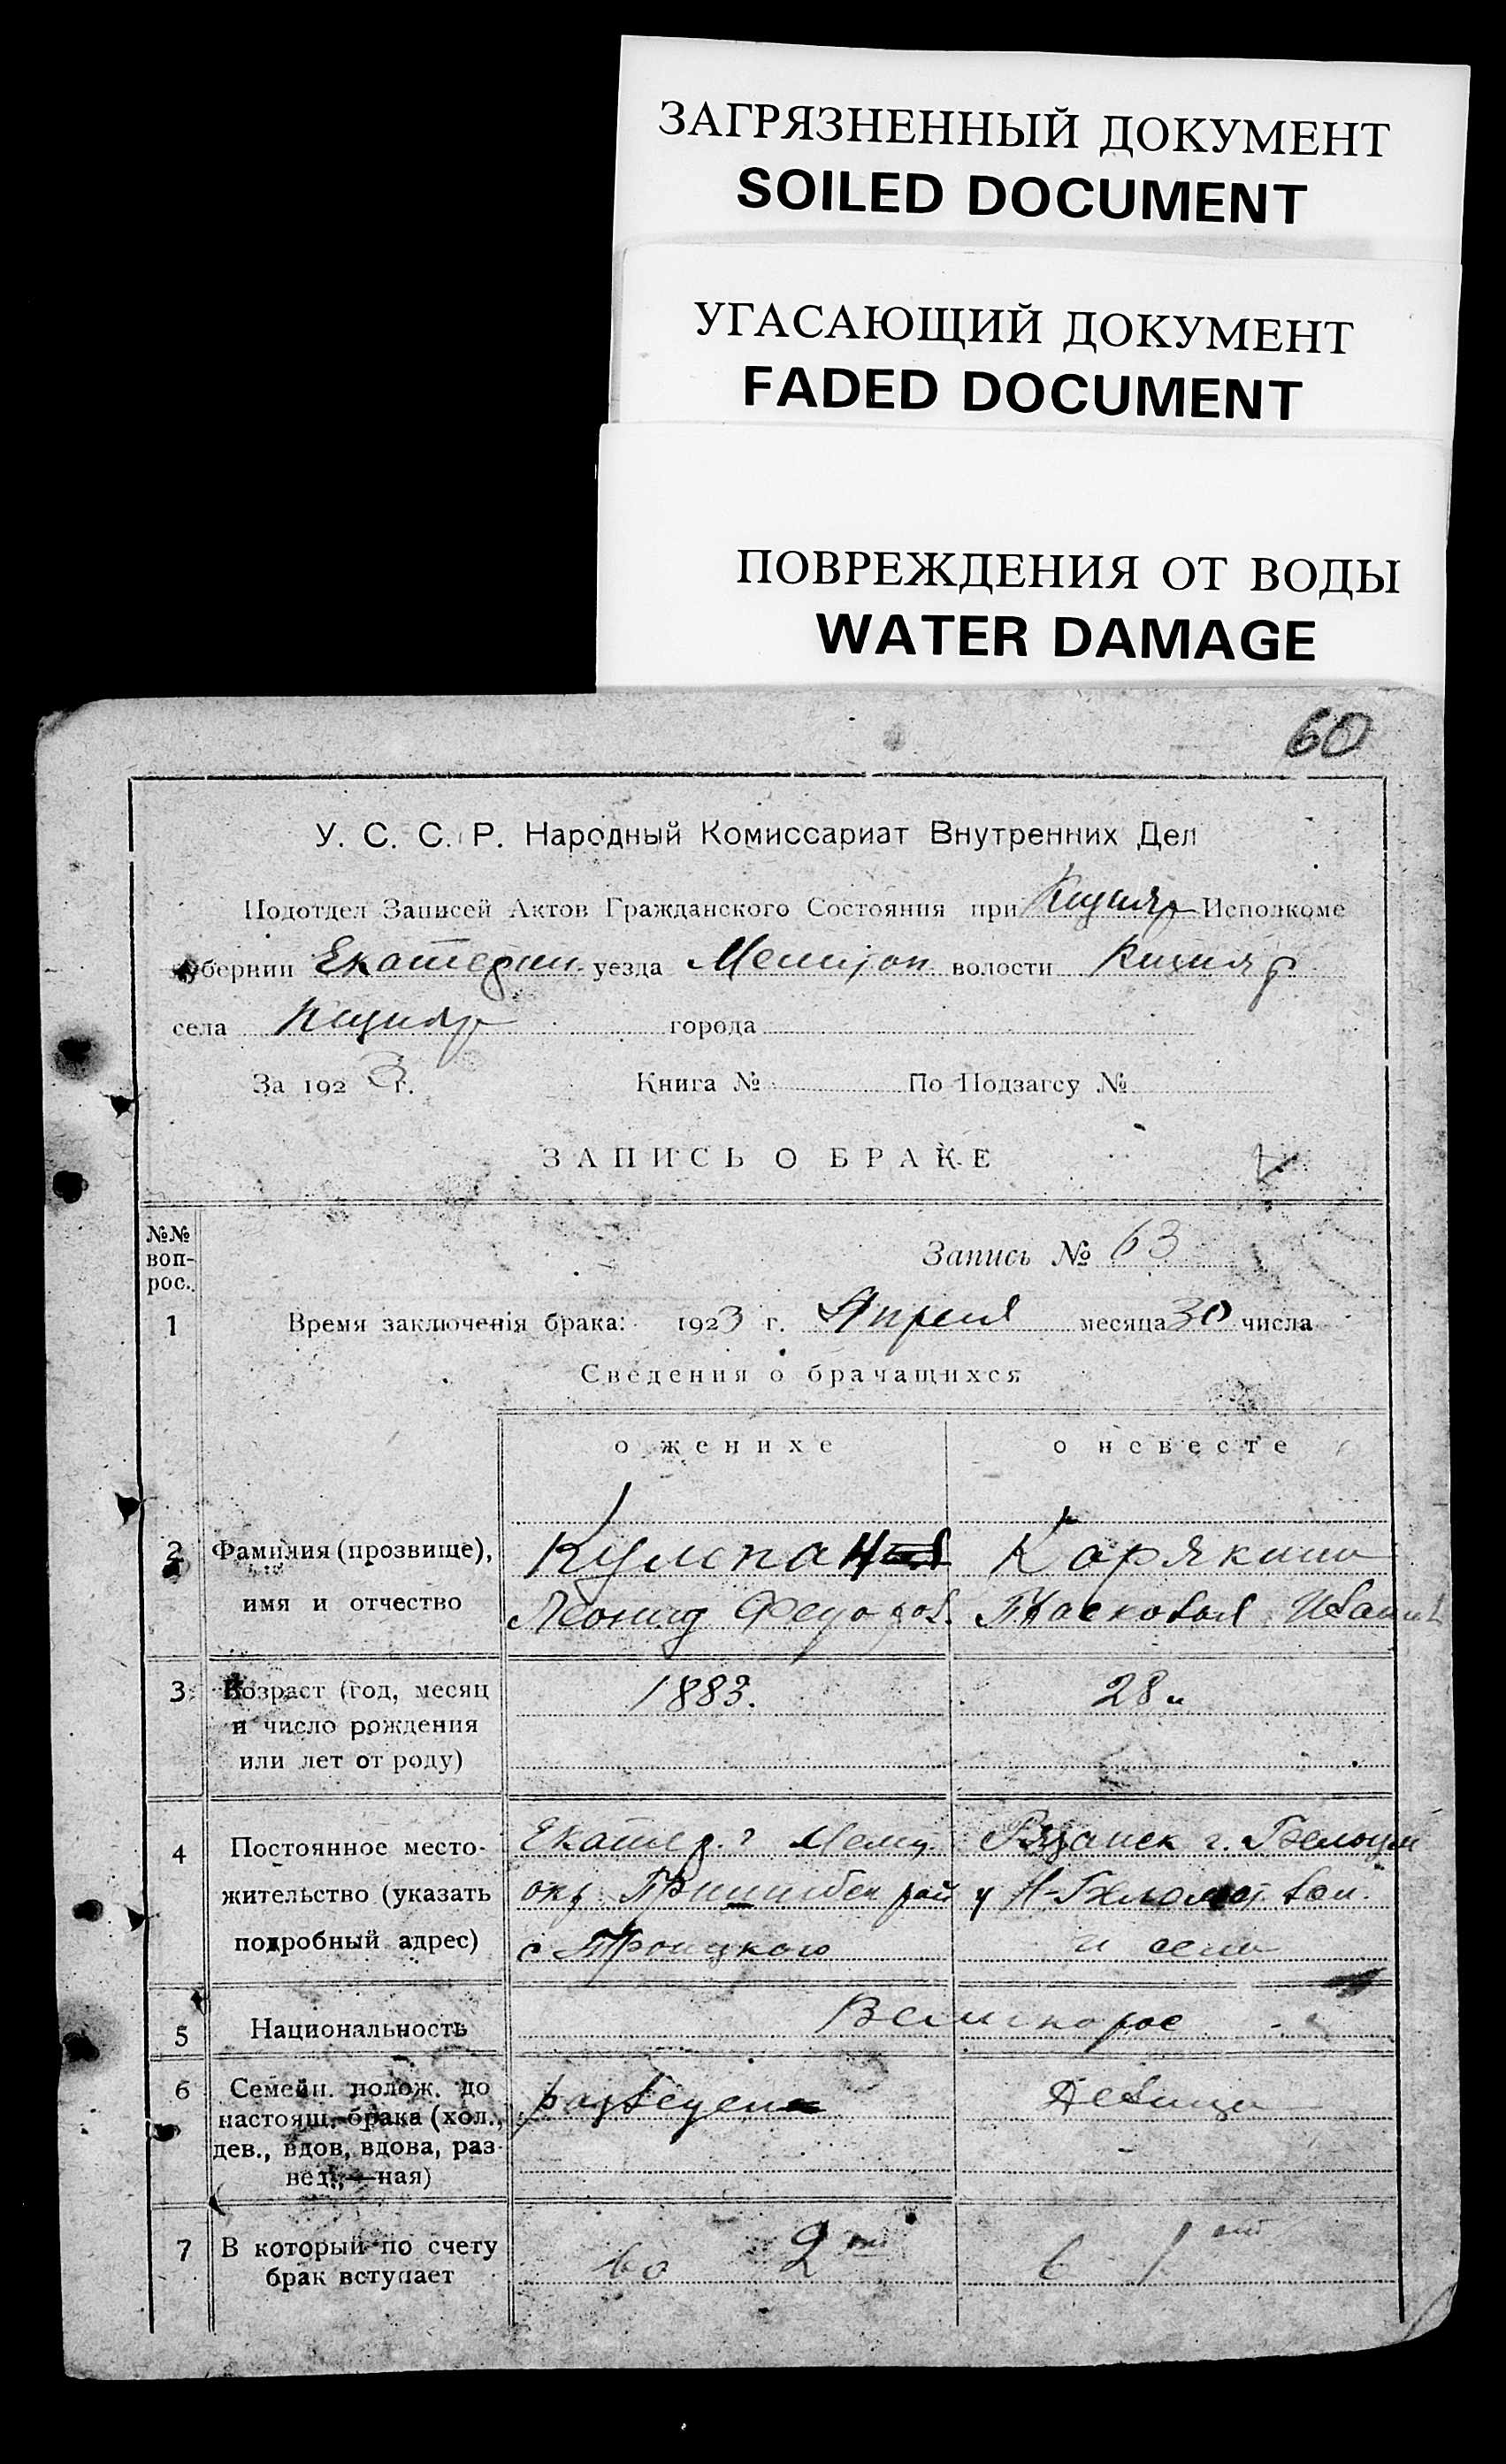 ЗАГРЯЗНЕННЫЙ ДОКУМЕНТ
SOILED DOCUMENT
УГАСАЮЩИЙ ДОКУМЕНТ
FADED DOCUMENT
ПОВРЕЖДЕНИЯ ОТ ВОДЫ
WATER DAMAGE
60
У. С. С. Р. Народный Комиссариат Внутренних Дел
Подотдел Записей Актов Гражданского Состояния при Кицияр Исполкоме
губернии Екатерин. уезда волости Кицияр
села Кицияр города
За 1923 г. Книга № По Подзагсу №
ЗАПИСЬ О БРАКЕ
№№ воп-
рос.
Запись № 63
1 Время заключенія брака: 1923 г. Апреля месяца 30 числа
Сведения о брачащихся
о женихе о невесте
2 Фамилия (прозвище), Корякина
имя и отчество Леонид Федоров. Прасковья Иванов
3 Возраст (год, месяц 1883. 28
и число рождения
или лет от роду)
4 Постоянное место- Екатер. г Мелит. Рязанск г.
жительство (указать окр. Пришибск рай у вол.
подробный адрес) с Троицкого и села
5 Национальность Великорос
6 Семейн. полож. до разведен Девица
настоящ. брака (хол.,
дев., вдов, вдова, раз-
вед.,—ная)
7 В который по счету во 2 ой в 1 ый
брак вступает